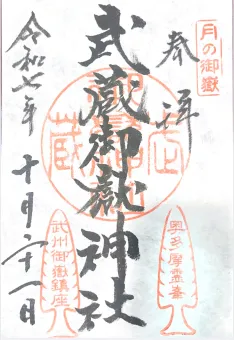 月の御嶽
奉拝
武蔵御嶽神社
令和七年
十月二十一日
奥多摩霊峯
武州御嶽鎮座